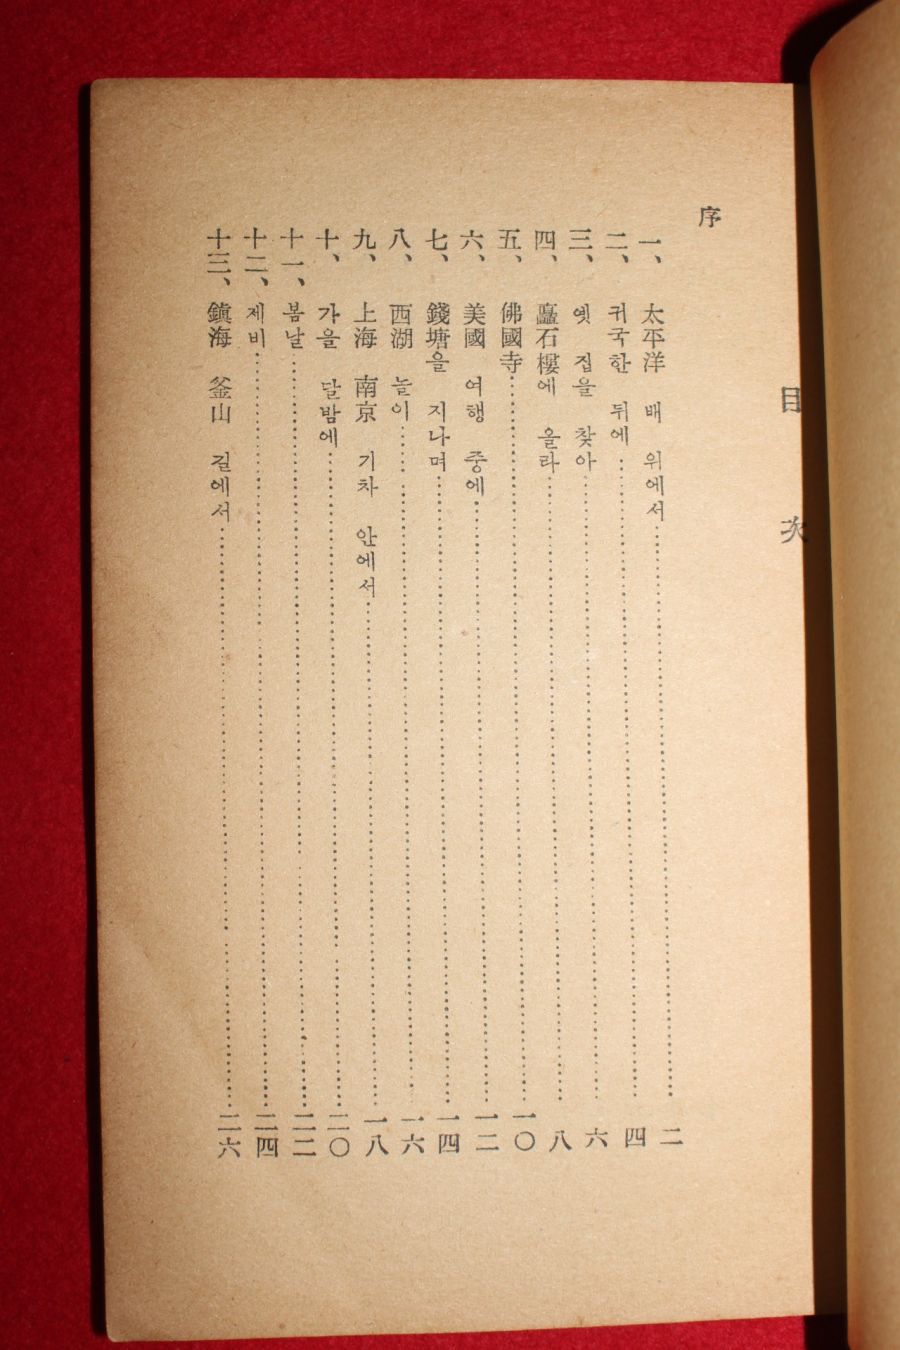 目次
序
一、 太平洋 배 위에서 二
二、 귀국한 뒤에 四
三、 옛 집을 찾아 六
四、 矗石樓에 올라 八
五、 佛國寺 一〇
六、 美國 여행 중에 一二
七、 錢塘을 지나며 一四
八、 西湖 놀이 一六
九、 上海 南京 기차 안에서 一八
十、 가을 달밤에 二〇
十一、 봄날 二二
十二、 제비 二四
十三、 鎭海 釜山 길에서 二六